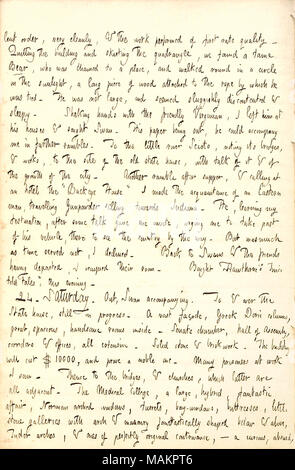 lent order, very cleanly & the work performed of first rate quality.
Quitting the building and skirting the quadrangle, we found a tame
Bear, who was chained to a place, and walked round in a circle
in the sunlight, a long piece of wood attached to the rope by which he
was tied. He was not large, and seemed sluggishly discontented &
sleepy. Shaking hands with the friendly Virginian, I left him at
his house & sought Swan. His paper being out, he could accompany
me in further rambles. To the little river Scioto, noting its bridges
& walks, to the site of the old state house, with talk of it & of
the growth of the city. Another ramble after supper, & calling at
an hotel the "Buckeye House". I made the acquaintance of an Eastern
man, travelling Gunpowder selling towards Indiana. He, learning my
destination, after some talk gave me invite, urging me to take part
of his vehicle, there to see the country by the way. But inasmuch
as time served not, I declined. Back to Swan's & the friends
having departed, I resumed their room. Bought Hawthorne's twice
told tales this evening.
24. Saturday. Out, Swan accompanying. To & over the
State house, still in progress. A vast façade, Greek Doric columns,
great, spacious, handsome rooms inside. Senate chamber, hall of Assembly,
corridors & offices, all extensive. Solid stone & brick work. The building
will cost $10000, and prove a noble one. Many prisoners at work
I saw. Thence to the bridges & churches, which latter are
all adjacent. The Medical College, a large, hybrid fantastic
affair, Norman arched windows, turrets, bay-windows, buttresses, little
stone galleries with arch & masonry fantastically shaped below & above,
Tudor arches, & one of perfectly original contrivance, — a curious, absurd,
alamy
Image ID: MAKPT6
www.alamy.com